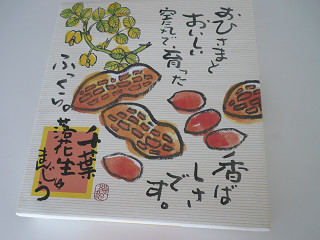 おひさまと
おいしい
空気で育った
ふっくら。
香ば
しさ
です。
千葉
落花生
まんじゅう